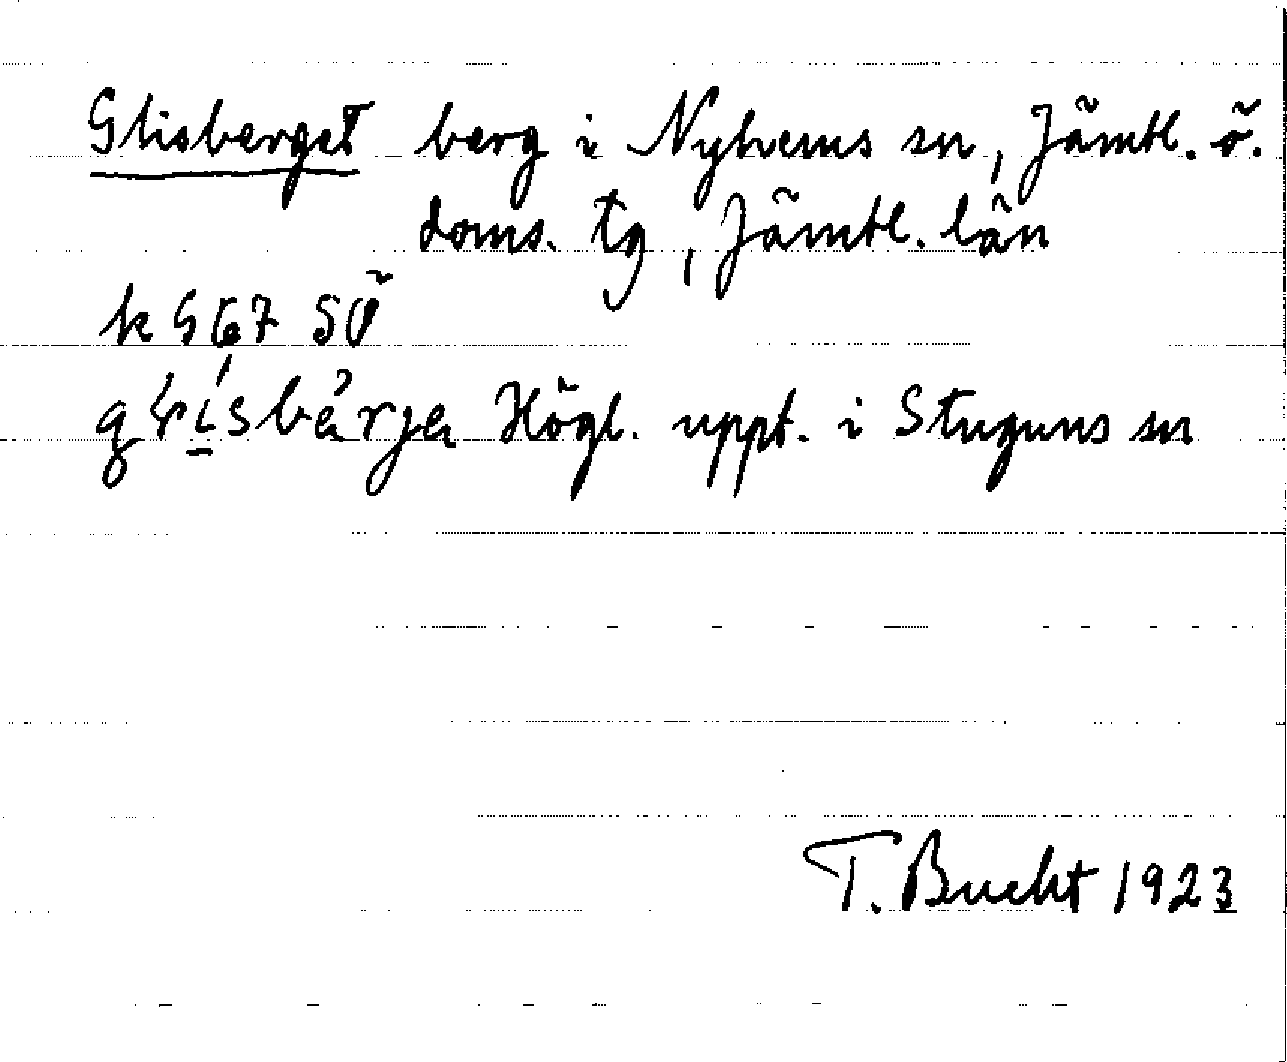 Glisberget berg i Nyhems sn, Jämtl. ö.
doms. tg, Jämtl. län
k G 67 SÖ
Högl. uppt. i Stuguns sn
T. Bucht 1923